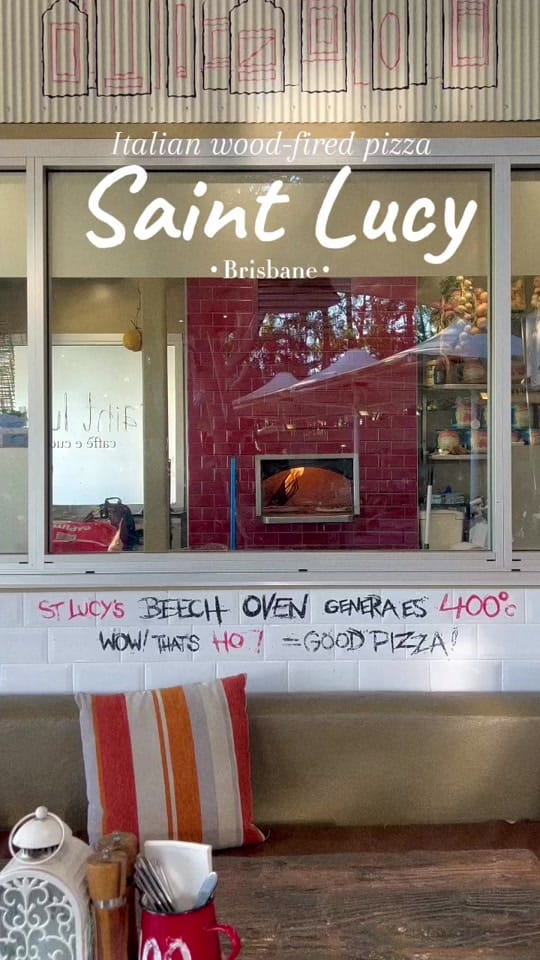 Italian wood-fired pizza
Saint Lucy
• Brisbane •
caffè e cuc
ST LUCY'S BEECH OVEN GENERA ES 400°c
WOW! THATS HO ! = GOOD PIZZA!